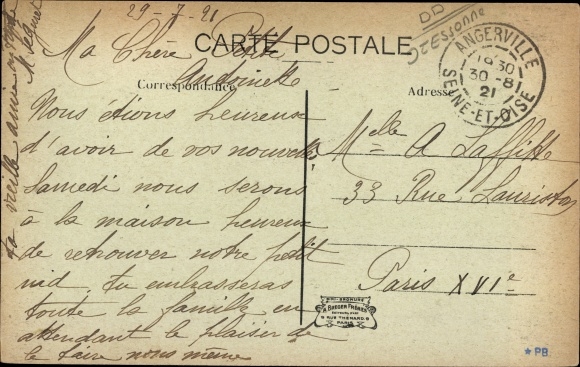 29-7-21
CARTE POSTALE
Ma Chère Petite
Antoinette
Correspondance
Nous étions heureux
d'avoir de vos nouvelles
Samedi nous serons
à la maison heureux
de retrouver notre petit
nid. tu embrasseras
toute la famille en
attendant le plaisir de
le faire nous même
ta vieille amie
Adresse
Melle A Laffitte
33 Rue Lauriston
Paris XVIe
ANGERVILLE
19 30
30 - 8
21
SEINE-ET-OISE
Essonne
BREGER FRÈRES
9 RUE THÉNARD. 9
PARIS
★ PB.